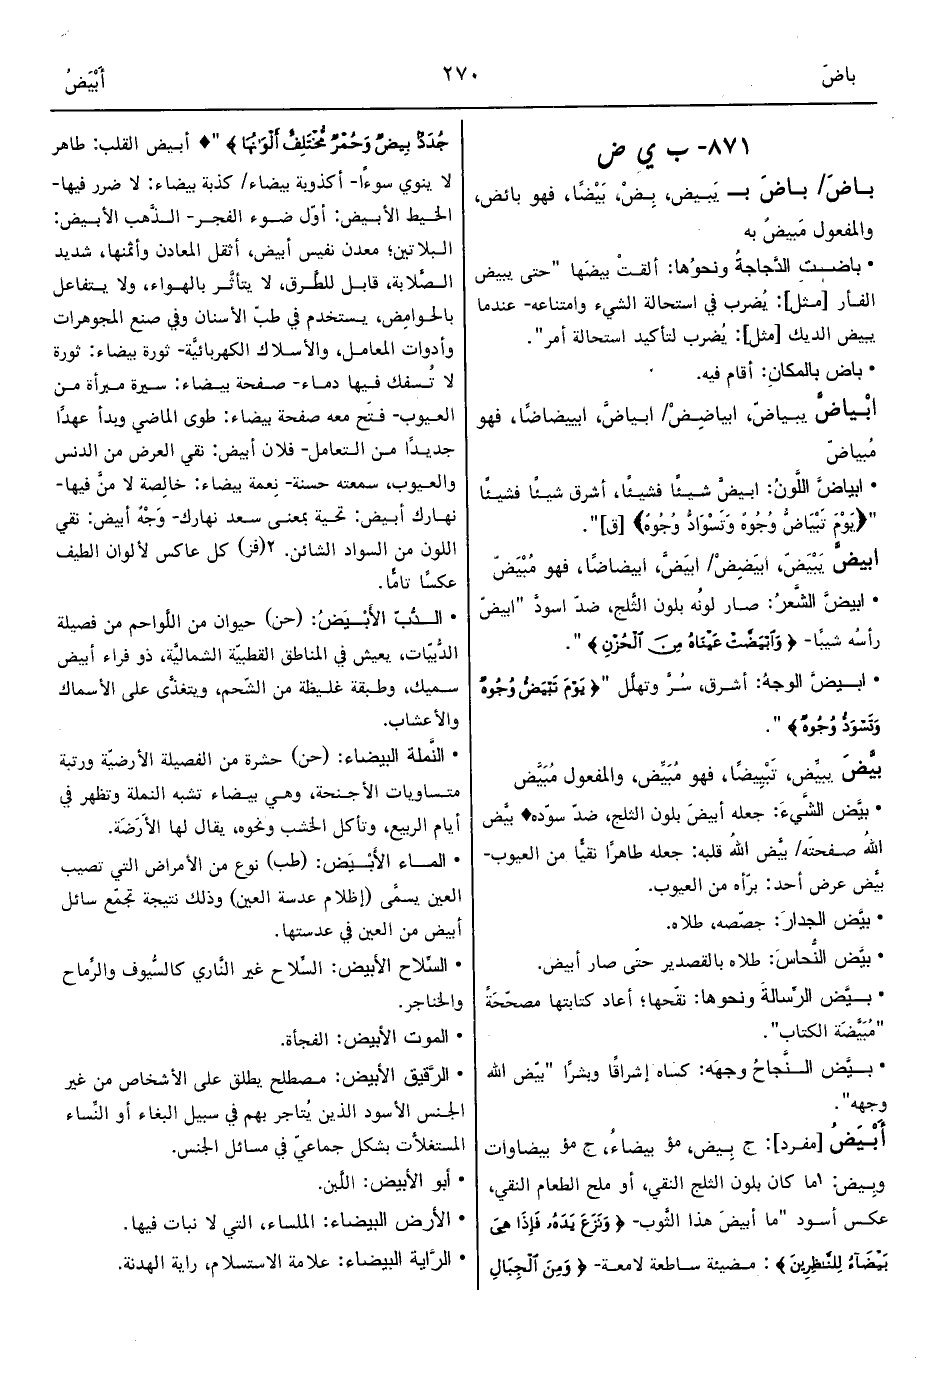 باضَ
٢٧٠
أَبْيَضُ
٨٧١- ب ي ض
باضَ/ باضَ بـ يَبيض، بِضْ، بَيْضًا، فهو بائض،
والمفعول مَبيضٌ به
• باضت الدَّجاجةُ ونحوُها: ألقتْ بيضَها "حتى يبيض
الفأر [مثل]: يُضرب في استحالة الشيء وامتناعه- عندما
يبيض الديك [مثل]: يُضرب لتأكيد استحالة أمر".
• باض بالمكان: أقام فيه.
ابْياضَّ يبياضّ، ابياضِضْ/ ابياضَّ، ابييضاضًا، فهو
مُبياضّ
• ابياضَّ اللَّونُ: ابيضّ شيئًا فشيئًا، أشرق شيئًا فشيئًا
"﴿يَوْمَ تَبْيَاضُّ وُجُوهٌ وَتَسْوَادُّ وُجُوهٌ﴾ [ق]".
ابيضَّ يَبْيَضّ، ابيَضِضْ/ ابيَضَّ، ابيضاضًا، فهو مُبْيَضّ
• ابيضَّ الشَّعرُ: صار لونُه بلون الثَّلج، ضدّ اسودّ "ابيضّ
رأسُه شيبًا- ﴿وَابْيَضَّتْ عَيْنَاهُ مِنَ الْحُزْنِ﴾".
• ابيضَّ الوجهُ: أشرق، سُرَّ وتهلَّل "﴿يَوْمَ تَبْيَضُّ وُجُوهٌ
وَتَسْوَدُّ وُجُوهٌ﴾".
بيَّضَ يبيِّض، تَبْيِيضًا، فهو مُبَيِّض، والمفعول مُبَيَّض
• بيَّض الشَّيءَ: جعله أبيضَ بلون الثلج، ضدّ سوّده♦ بيَّض
اللهُ صفحتَه/ بيَّض اللهُ قلبَه: جعله طاهرًا نقيًّا من العيوب-
بيَّض عرض أحد: برّأه من العيوب.
• بيَّض الجدارَ: جصّصه، طلاه.
• بيَّض النُّحاسَ: طلاه بالقصدير حتّى صار أبيض.
• بيَّض الرِّسالةَ ونحوها: نقّحها؛ أعاد كتابتها مصحّحةً
"مُبَيَّضَة الكتاب".
• بيَّض النَّجاحُ وجهَه: كساه إشراقًا وبشرًا "بيّض الله
وجهه".
أَبْيَضُ [مفرد]: ج بِيض، مؤ بيضاءُ، ج مؤ بيضاوات
وبِيض: ١ما كان بلون الثلج النقي، أو ملح الطعام النقي،
عكس أسود "ما أبيضَ هذا الثَّوب- ﴿وَنَزَعَ يَدَهُ، فَإِذَا هِىَ
بَيْضَآءُ لِلنَّٰظِرِينَ﴾: مضيئة ساطعة لامعة- ﴿وَمِنَ الْجِبَالِ
جُدَدٌ بِيضٌ وَحُمْرٌ مُّخْتَلِفٌ أَلْوَانُهَا﴾ "♦ أبيض القلب: طاهر
لا ينوي سوءًا- أكذوبة بيضاء/ كذبة بيضاء: لا ضرر فيها-
الخيط الأبيض: أوّل ضوء الفجر- الذَّهب الأبيض:
البلاتين؛ معدن نفيس أبيض، أثقل المعادن وأثمنها، شديد
الصَّلابة، قابل للطَّرق، لا يتأثَّر بالهواء، ولا يتفاعل
بالحوامض، يستخدم في طبّ الأسنان وفي صنع المجوهرات
وأدوات المعامل، والأسلاك الكهربائيَّة- ثورة بيضاء: ثورة
لا تُسفك فيها دماء- صفحة بيضاء: سيرة مبرأة من
العيوب- فتَح معه صفحة بيضاء: طوى الماضي وبدأ عهدًا
جديدًا من التعامل- فلان أبيض: نقي العرض من الدنس
والعيوب، سمعته حسنة- نِعمة بيضاء: خالصة لا منَّ فيها-
نهارك أبيض: تحية بمعنى سعد نهارك- وَجْهٌ أبيض: نقي
اللون من السواد الشائن. ٢(فز) كل عاكس لألوان الطيف
عكسًا تامًّا.
• الدُّبّ الأَبْيَضُ: (حن) حيوان من اللَّواحم من فصيلة
الدُّبيّات، يعيش في المناطق القطبيّة الشماليَّة، ذو فراء أبيض
سميك، وطبقة غليظة من الشّحم، ويتغذَّى على الأسماك
والأعشاب.
• النَّملة البيضاء: (حن) حشرة من الفصيلة الأرضيّة ورتبة
متساويات الأجنحة، وهي بيضاء تشبه النملة وتظهر في
أيام الربيع، وتأكل الخشب ونحوه، يقال لها الأَرَضَة.
• الماء الأَبْيَض: (طب) نوع من الأمراض التي تصيب
العين يسمَّى (إظلام عدسة العين) وذلك نتيجة تجمّع سائل
أبيض من العين في عدستها.
• السِّلاح الأبيض: السِّلاح غير النَّاري كالسُّيوف والرِّماح
والخناجر.
• الموت الأبيض: الفجأة.
• الرَّقيق الأبيض: مصطلح يطلق على الأشخاص من غير
الجنس الأسود الذين يُتاجر بهم في سبيل البغاء أو النِّساء
المستغلاَّت بشكل جماعيّ في مسائل الجنس.
• أبو الأبيض: اللَّبن.
• الأرض البيضاء: الملساء، التي لا نبات فيها.
• الرَّاية البيضاء: علامة الاستسلام، راية الهدنة.